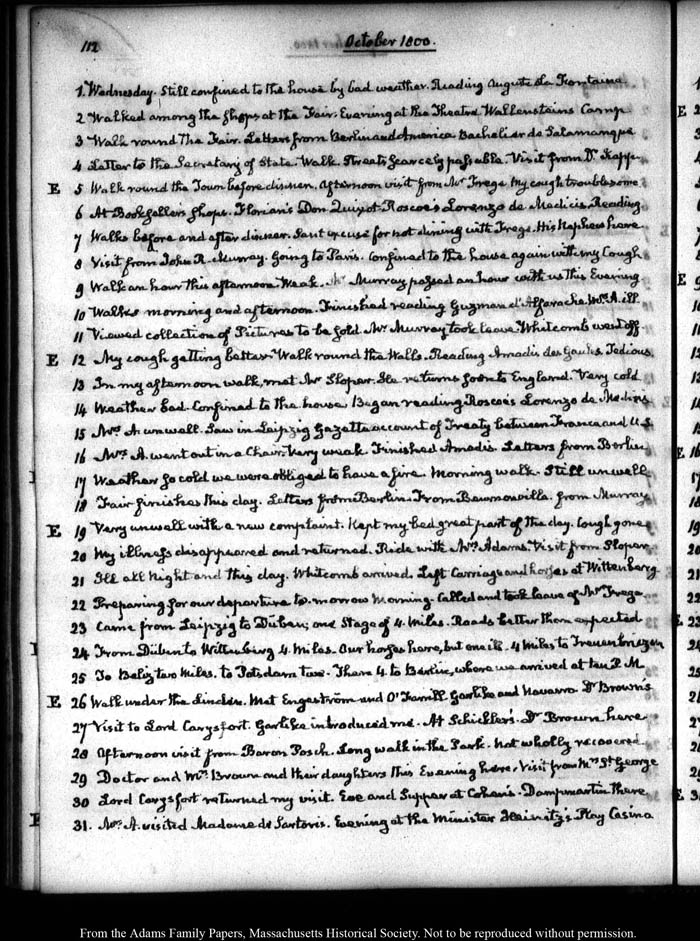 112 October 1800.
1. Wednesday. Still confined to the house by bad weather. Reading Auguste La Fontaine
2 Walked among the shops at the Fair. Evening at the Theatre Wallensteins Camp
3 Walk round the Fair. Letters from Berlin and America Bachelier de Salamanque
4 Letter to the Secretary of State. Walk. Streets scarcely passable. Visit from Dr.
E 5 Walk round the Town before dinner. Afternoon visit from Mr. Frege My cough troublesome
6 At Booksellers shops. Florian's Don Quixot. Roscoe's Lorenzo de Medicis. Reading
7 Walks before and after dinner. Sent excuse for not dining with Frege. His Nephew here
8 Visit from John R. Murray. Going to Paris. Confined to the house again with my Cough
9 Walk an hour this afternoon. Weak. Mr. Murray passed an hour with us this Evening
10 Walks morning and afternoon. Finished reading Guzman d'Alfarache Mrs. A. ill.
11 Viewed collection of Pictures to be sold. Mr. Murray took leave. Whitcomb went off
E 12 My cough getting better. Walk round the Walls. Reading Amadis des Gaules. Tedious.
13 In my afternoon walk, met Mr Sloper. He returns soon to England. Very cold
14 Weather bad. Confined to the house Began reading Roscoe's Lorenzo de Medicis
15 Mrs. A. unwell. Saw in Leipzig Gazette account of Treaty between France and U.S.
16 Mrs. A. went out in a Chair. Very weak. Finished Amadis. Letters from Berlin
17 Weather so cold we were obliged to have a fire. Morning walk. Still unwell
18 Fair finishes this day. Letters from Berlin. From Beurnonville. from Murray
E 19 Very unwell with a new complaint. Kept my bed great part of the day. Cough gone
20 My illness disappeared and returned. Ride with Mrs. Adams. Visit from Sloper
21 Ill all Night and this day. Whitcomb arrived. Left Carriage and horses at Wittenberg
22 Preparing for our departure to-morrow Morning. Called and took leave of Mr Frege
23 Came from Leipzig to Düben; one Stage of 4. Miles. Roads better than expected
24 From Düben to Wittenberg 4. Miles. Our horses here, but one ill. 4 Miles to Treuenbriezen
25 To Beliz two Miles. to Potsdam two. Thence 4. to Berlin, where we arrived at ten P.M.
E 26 Walk under the Linden. Met Engeström and O'Farrill Garlike and Navarro Dr Brown's
27 Visit to Lord Carysfort. Garlike introduced me. At Schickler's. Dr Brown here
28 Afternoon visit from Baron Posch. Long walk in the Park. Not wholly recovered
29 Doctor and Mrs. Brown and their daughters this Evening here. Visit from Mrs St George
30 Lord Carysfort returned my visit. Eve and Supper at Cohen's. Dampmartin there
31. Mrs. A. visited Madame de Sartoris. Evening at the Minister Heinitz's Play Casino
From the Adams Family Papers, Massachusetts Historical Society. Not to be reproduced without permission.